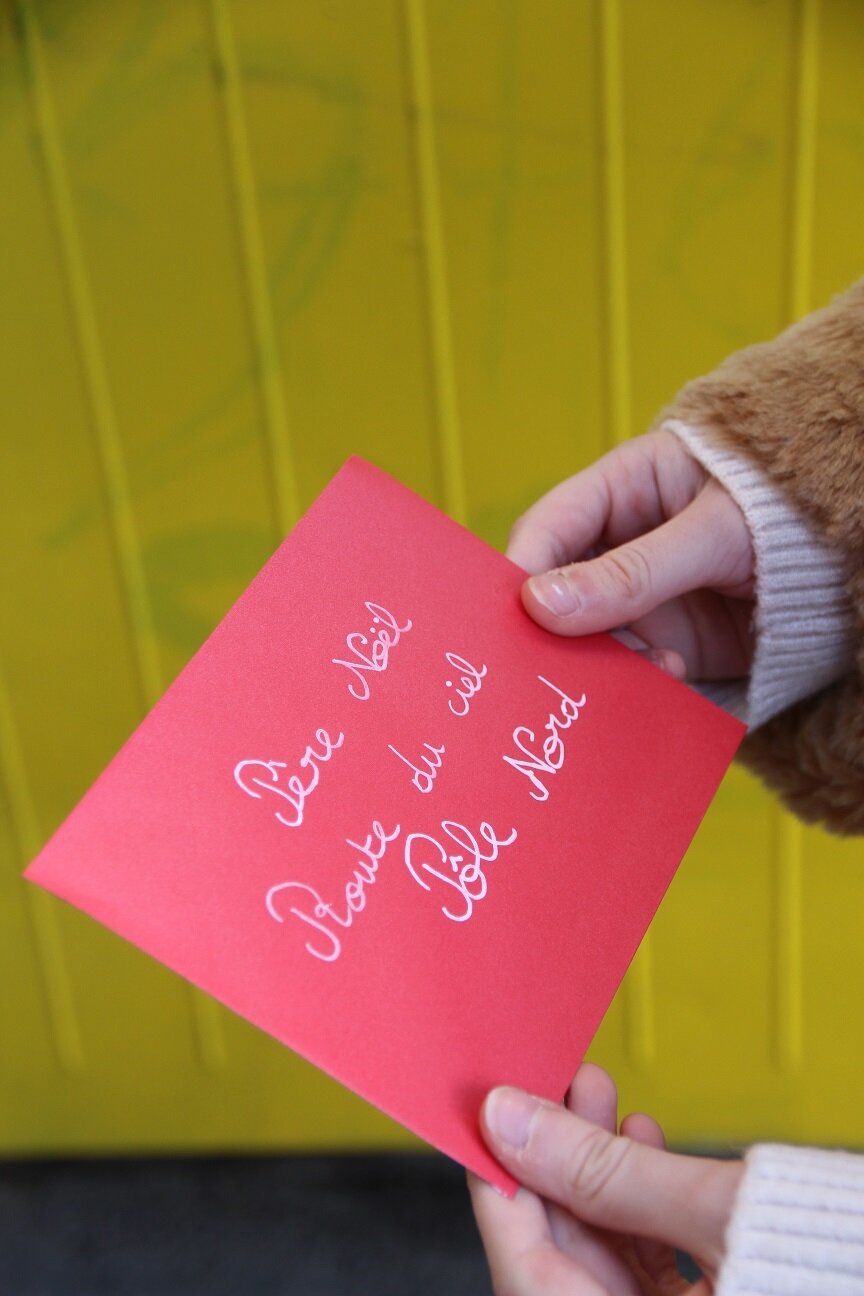 Père Noël
Route du ciel
Pôle Nord